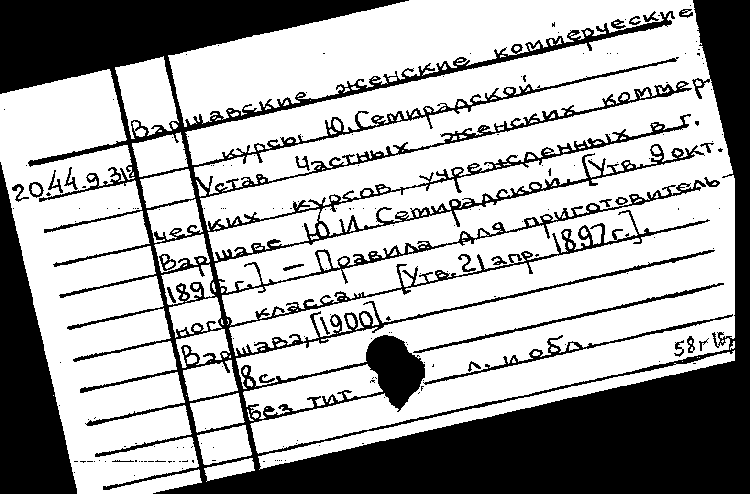 Варшавские женские коммерческие
курсы Ю. Семирадской.
20.44.9.318
Устав частных женских коммер-
ческих курсов, учрежденных в г.
Варшаве Ю.И. Семирадской. [Утв. 9 окт.
1896 г.]. — Правила для приготовитель
ного класса... [Утв. 21 апр. 1897 г.].
Варшава, [1900].
8 с.
Без тит. л. и обл.